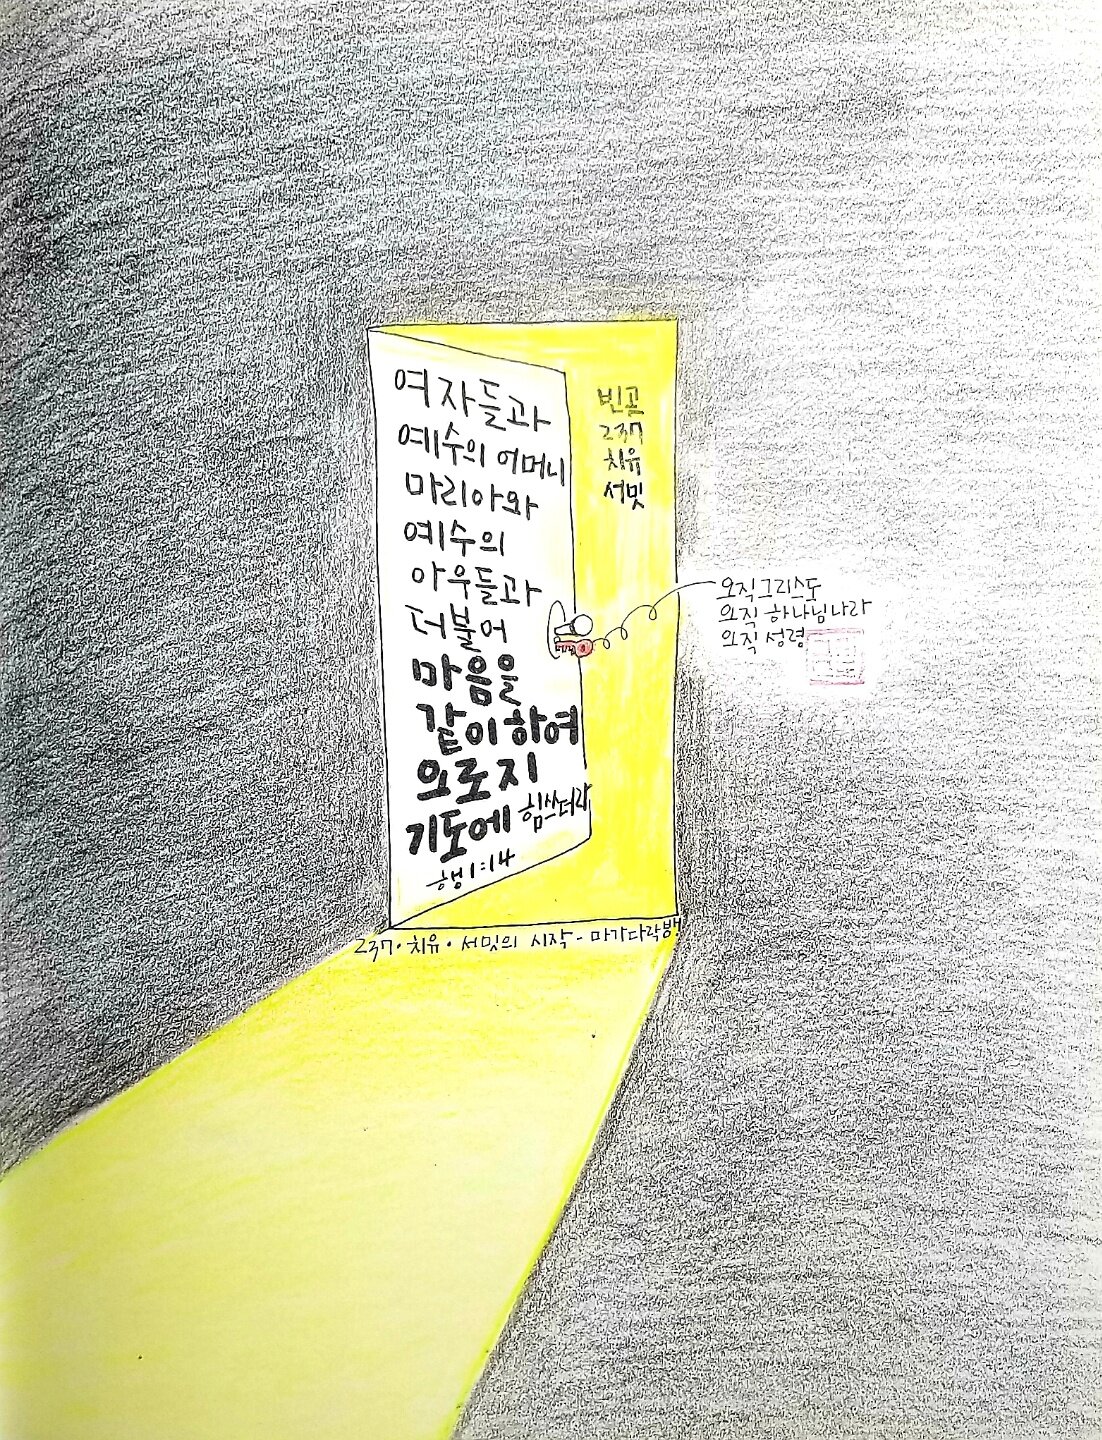 여자들과
예수의 어머니
마리아와
예수의
아우들과
더불어
마음을
같이하여
오로지
기도에 힘쓰더라
행1:14
빈곳
237
치유
서밋
오직그리스도
오직 하나님나라
오직 성령
237·치유·서밋의 시작-마가다락방